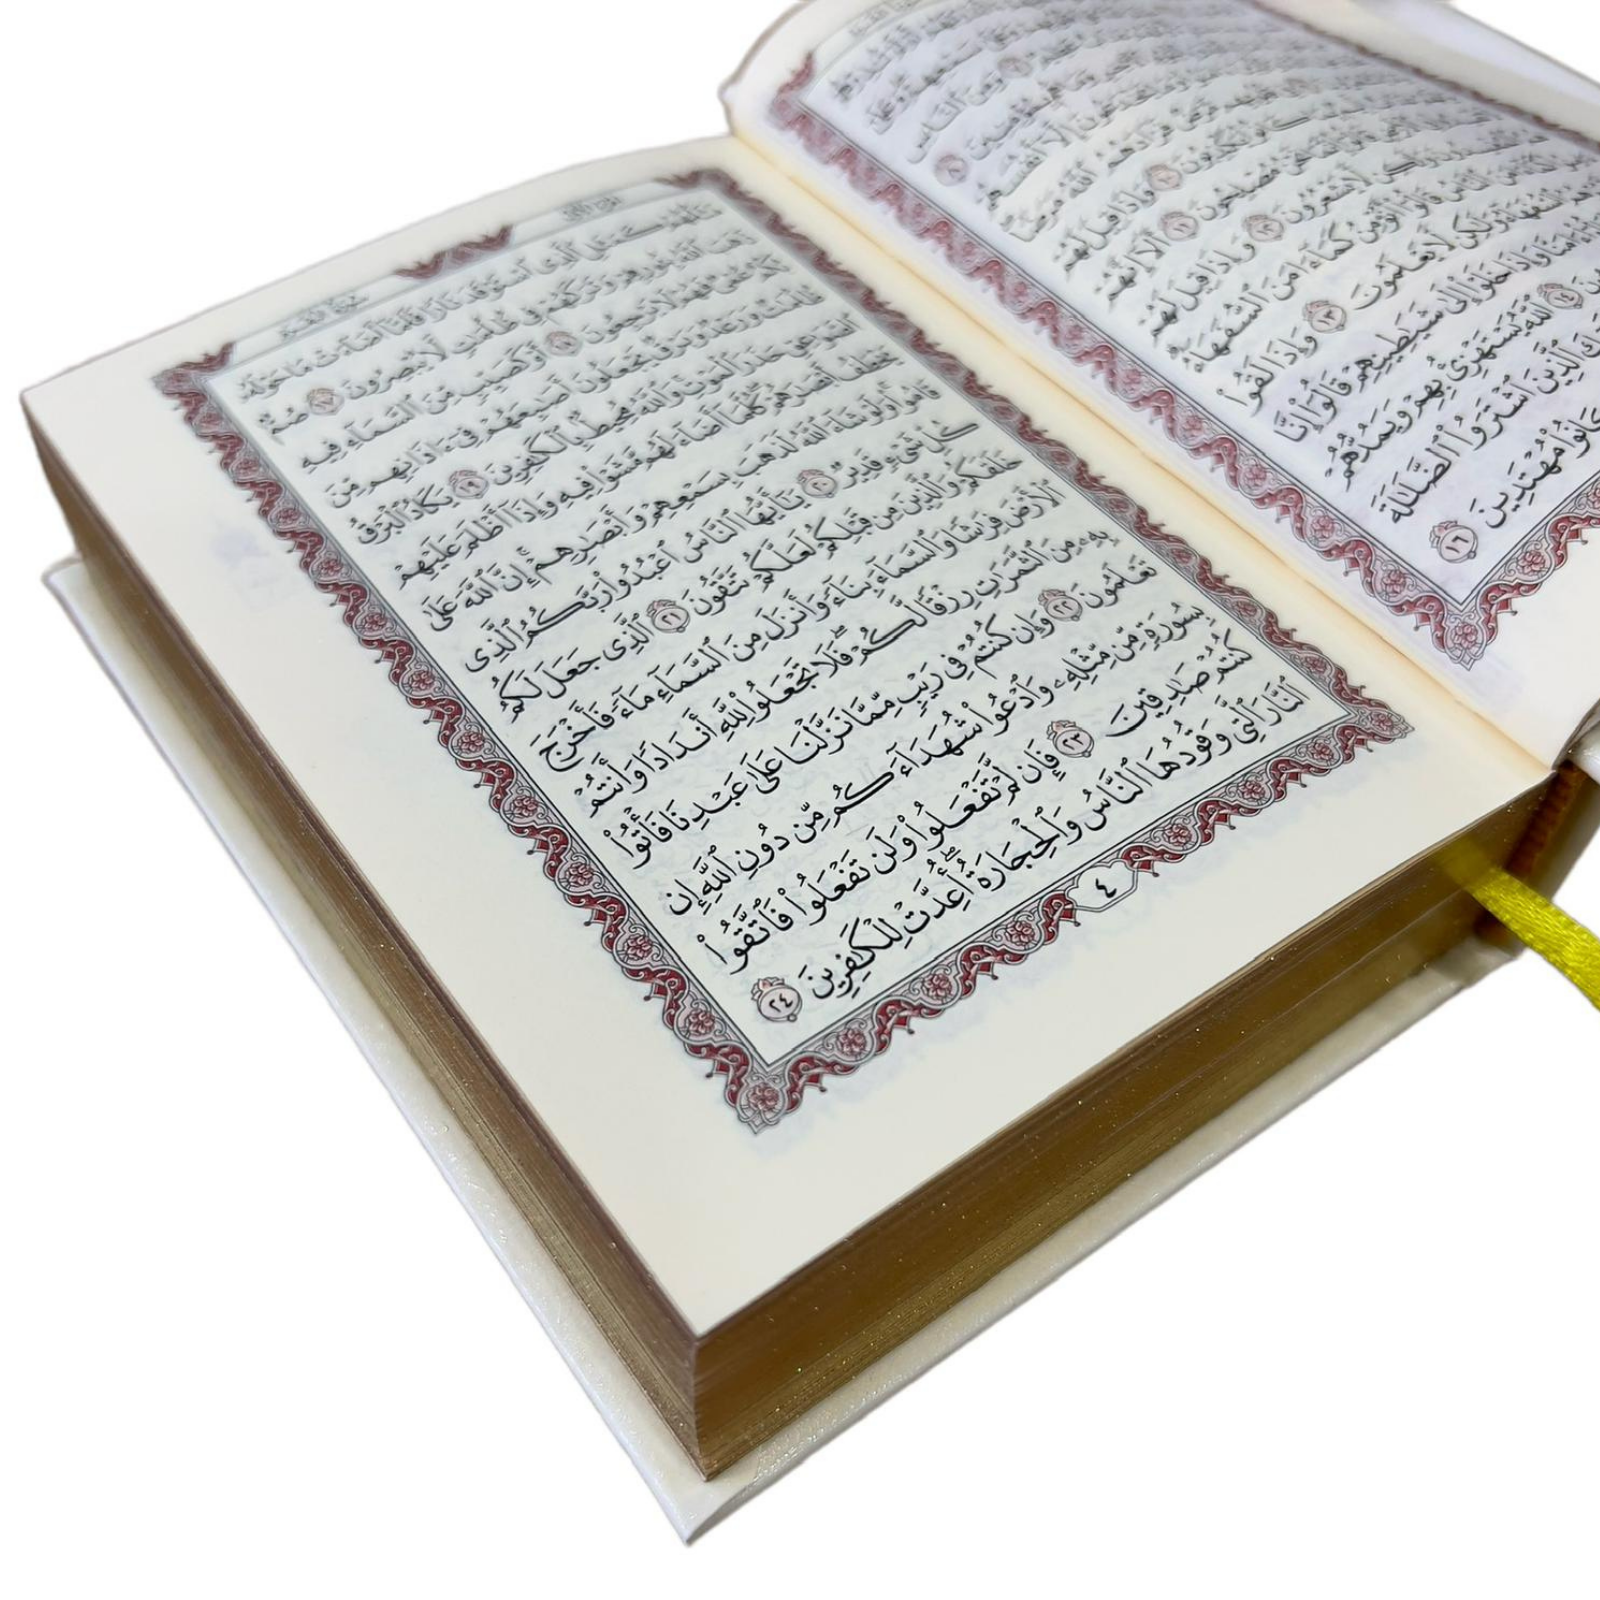 وَمِنَ ٱلنَّاسِ
بِمُؤْمِنِينَ ٨
إِلَّآ أَنفُسَهُمْ
مَّرَضٌ فَزَادَهُمُ ٱللَّهُ مَرَضًا
يَكْذِبُونَ ١٠ وَإِذَا قِيلَ لَهُمْ
مُصْلِحُونَ ١١ أَلَآ إِنَّهُمْ
لَّا يَشْعُرُونَ ١٢ وَإِذَا قِيلَ لَهُمْ
أَنُؤْمِنُ كَمَآ ءَامَنَ ٱلسُّفَهَآءُ
ٱلسُّفَهَآءُ وَلَٰكِن لَّا يَعْلَمُونَ ١٣ وَإِذَا لَقُوا۟
ءَامَنَّا وَإِذَا خَلَوْا۟ إِلَىٰ شَيَٰطِينِهِمْ قَالُوٓا۟ إِنَّا
١٤ ٱللَّهُ يَسْتَهْزِئُ بِهِمْ وَيَمُدُّهُمْ
ٱلَّذِينَ ٱشْتَرَوُا۟ ٱلضَّلَٰلَةَ
كَانُوا۟ مُهْتَدِينَ ١٦
مَثَلُهُمْ كَمَثَلِ ٱلَّذِى ٱسْتَوْقَدَ نَارًا فَلَمَّآ أَضَآءَتْ مَا حَوْلَهُۥ
ذَهَبَ ٱللَّهُ بِنُورِهِمْ وَتَرَكَهُمْ فِى ظُلُمَٰتٍ لَّا يُبْصِرُونَ ١٧ صُمٌّۢ
بُكْمٌ عُمْىٌ فَهُمْ لَا يَرْجِعُونَ ١٨ أَوْ كَصَيِّبٍ مِّنَ ٱلسَّمَآءِ فِيهِ
ظُلُمَٰتٌ وَرَعْدٌ وَبَرْقٌ يَجْعَلُونَ أَصَٰبِعَهُمْ فِىٓ ءَاذَانِهِم مِّنَ
ٱلصَّوَٰعِقِ حَذَرَ ٱلْمَوْتِ وَٱللَّهُ مُحِيطٌۢ بِٱلْكَٰفِرِينَ ١٩ يَكَادُ ٱلْبَرْقُ
يَخْطَفُ أَبْصَٰرَهُمْ كُلَّمَآ أَضَآءَ لَهُم مَّشَوْا۟ فِيهِ وَإِذَآ أَظْلَمَ عَلَيْهِمْ
قَامُوا۟ وَلَوْ شَآءَ ٱللَّهُ لَذَهَبَ بِسَمْعِهِمْ وَأَبْصَٰرِهِمْ إِنَّ ٱللَّهَ عَلَىٰ
كُلِّ شَىْءٍ قَدِيرٌ ٢٠ يَٰٓأَيُّهَا ٱلنَّاسُ ٱعْبُدُوا۟ رَبَّكُمُ ٱلَّذِى
خَلَقَكُمْ وَٱلَّذِينَ مِن قَبْلِكُمْ لَعَلَّكُمْ تَتَّقُونَ ٢١ ٱلَّذِى جَعَلَ لَكُمُ
ٱلْأَرْضَ فِرَٰشًا وَٱلسَّمَآءَ بِنَآءً وَأَنزَلَ مِنَ ٱلسَّمَآءِ مَآءً فَأَخْرَجَ
بِهِۦ مِنَ ٱلثَّمَرَٰتِ رِزْقًا لَّكُمْ فَلَا تَجْعَلُوا۟ لِلَّهِ أَندَادًا وَأَنتُمْ
تَعْلَمُونَ ٢٢ وَإِن كُنتُمْ فِى رَيْبٍ مِّمَّا نَزَّلْنَا عَلَىٰ عَبْدِنَا فَأْتُوا۟
بِسُورَةٍ مِّن مِّثْلِهِۦ وَٱدْعُوا۟ شُهَدَآءَكُم مِّن دُونِ ٱللَّهِ إِن
كُنتُمْ صَٰدِقِينَ ٢٣ فَإِن لَّمْ تَفْعَلُوا۟ وَلَن تَفْعَلُوا۟ فَٱتَّقُوا۟
ٱلنَّارَ ٱلَّتِى وَقُودُهَا ٱلنَّاسُ وَٱلْحِجَارَةُ أُعِدَّتْ لِلْكَٰفِرِينَ ٢٤
٤